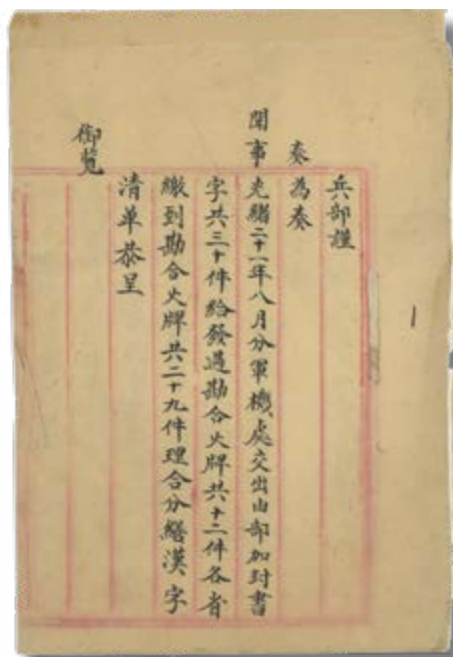 兵部謹
奏為奏
聞事光緒二十一年八月分軍機處交出由部加封書
字共三十件給發過勘合火牌共十二件各省
繳到勘合火牌共二十九件理合分繕漢字
清單恭呈
御覽